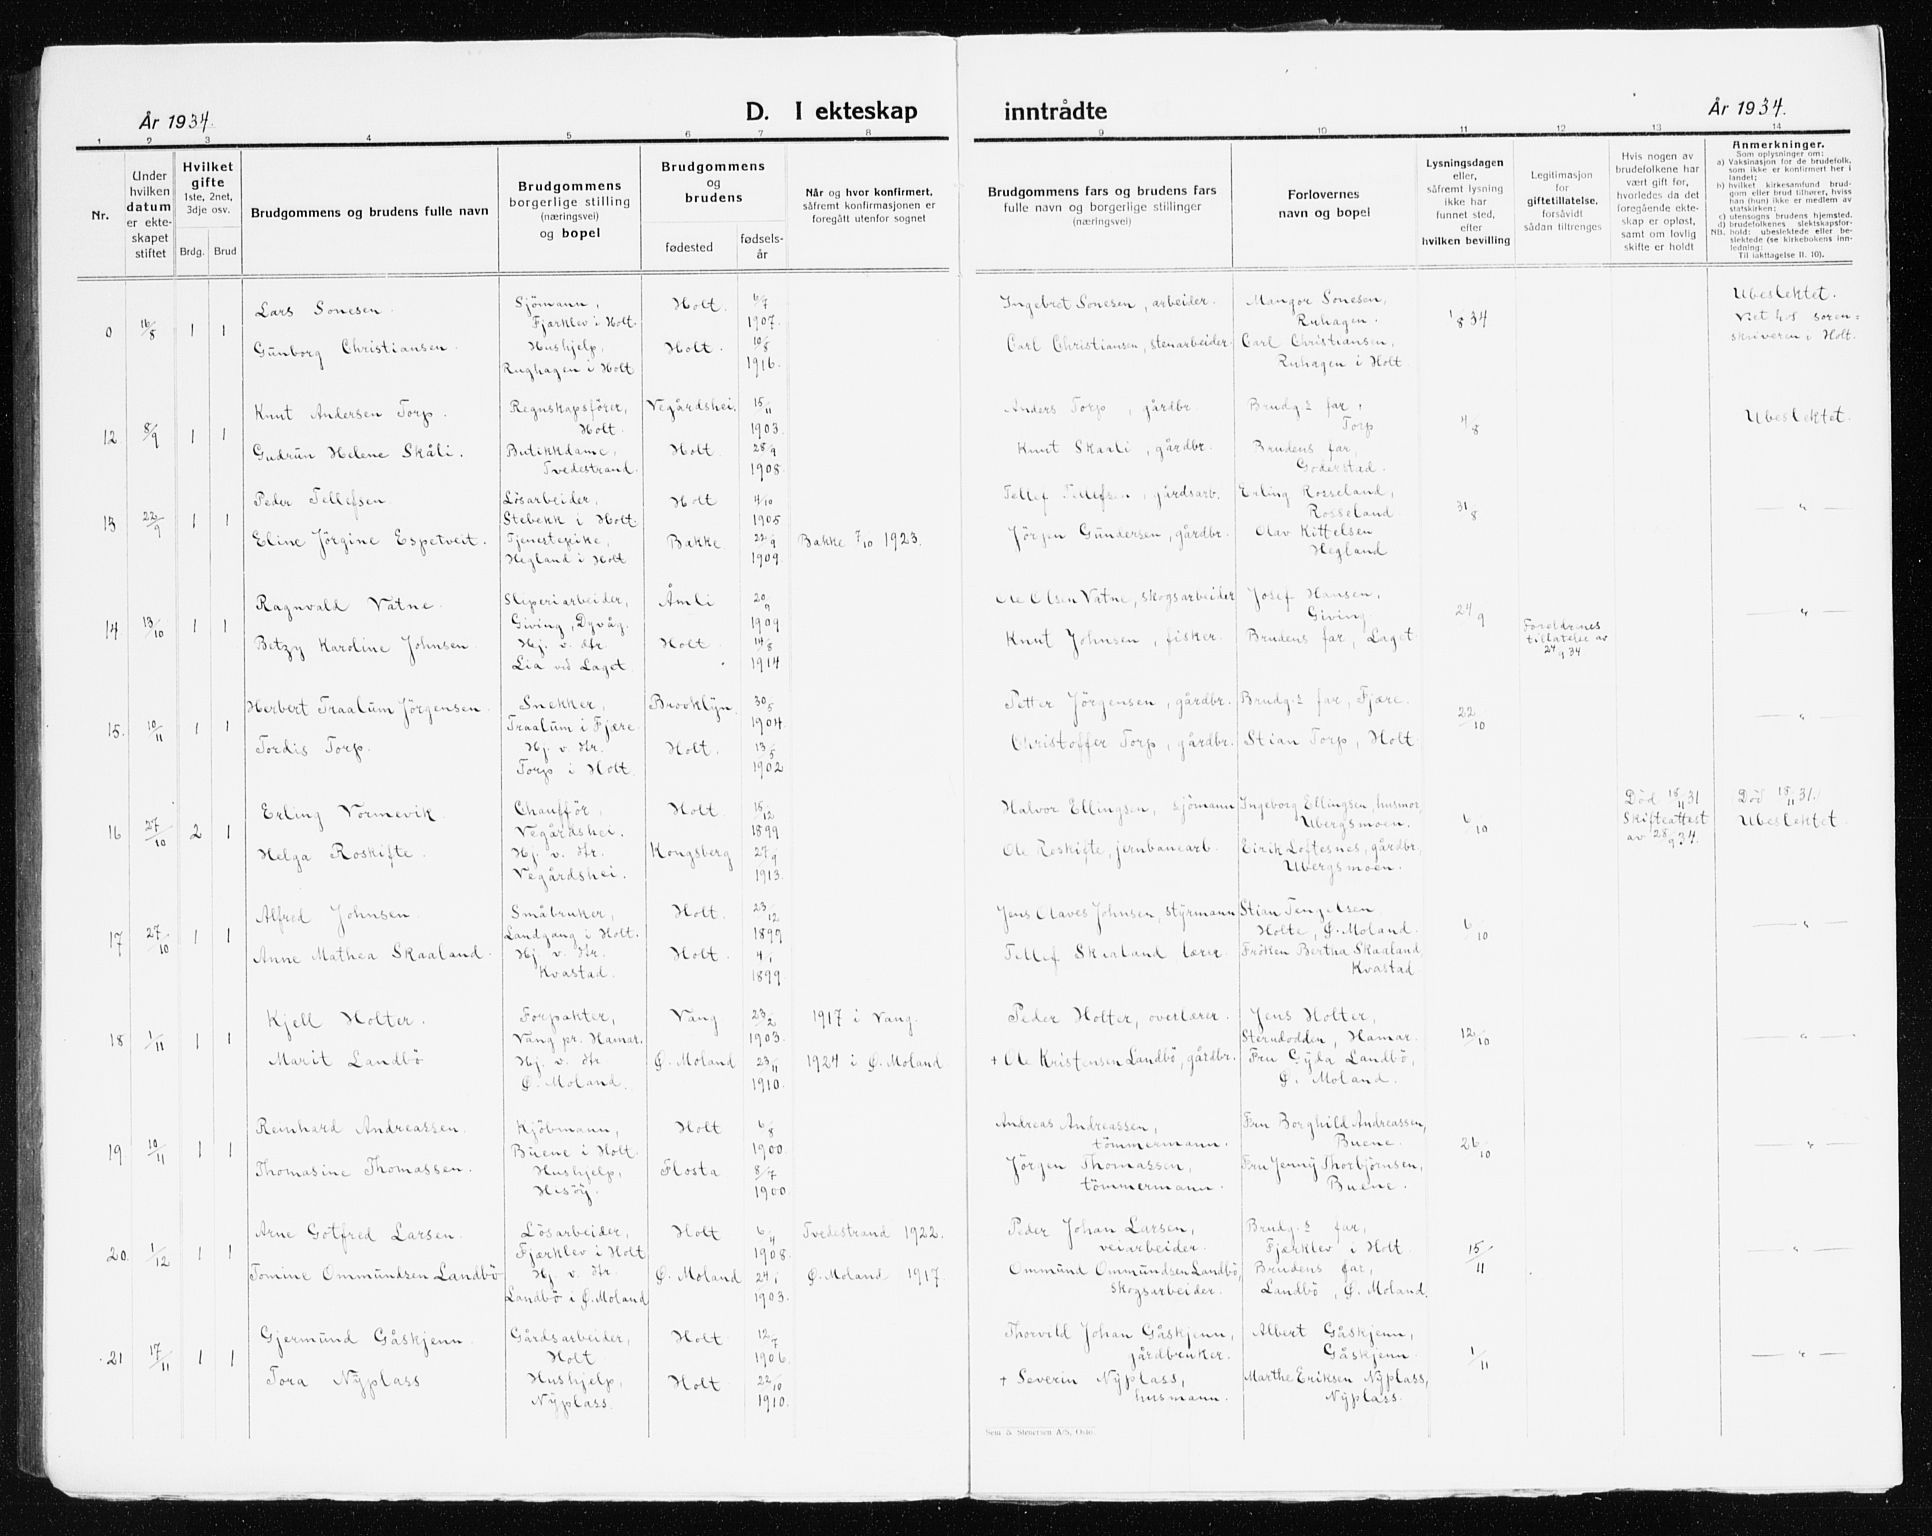 År 1934.
D. I ekteskap
inntrådte
År 1934.
1 2 3 4 5 6 7 8 9 10 11 12 13 14
Nr.
Under hvilken datum er ekteskapet stiftet
Hvilket gifte
1ste, 2net, 3dje osv.
Brdg. Brud
Brudgommens og brudens fulle navn
Brudgommens borgerlige stilling (næringsvei) og bopel
Brudgommens og brudens
fødested
fødselsår
Når og hvor konfirmert, såfremt konfirmasjonen er foregått utenfor sognet
Brudgommens fars og brudens fars fulle navn og borgerlige stillinger (næringsvei)
Forlovernes navn og bopel
Lysningsdagen eller, såfremt lysning ikke har funnet sted, efter hvilken bevilling
Legitimasjon for giftetillatelse, forsåvidt sådan tiltrenges
Hvis nogen av brudefolkene har vært gift før, hvorledes da det foregående ekteskap er opløst, samt om lovlig skifte er holdt
Anmerkninger.
Som oplysninger om:
a) Vaksinasjon for de brudefolk, som ikke er konfirmert her i landet;
b) hvilket kirkesamfund brudgom eller brud tilhører, hvis han (hun) ikke er medlem av statskirken;
c) utensogns brudens hjemsted.
d) brudefolkenes slektskapsforhold: ubeslektede eller beslektede (se kirkebokens innledning:
NB.
Til iakttagelse II. 10).
0 16/8 1 1 Lars Sonesen. Sjömann, Fjærklev i Holt. Holt. 6/7 1907. Ingebret Sonesen, arbeider. Mangor Sonesen, Ruhagen. 1/8 34 Ubeslektet. Viet hos sorenskriveren i Holt.
Gunborg Christiansen. Hushjelp, Rughagen i Holt Holt. 10/8 1916. Carl Christiansen, stenarbeider. Carl Christiansen, Ruhagen i Holt.
12 8/9 1 1 Knut Andersen Torp. Regnskapsförer, Holt. Vegårdshei. 15/11 1903. Anders Torp, gårdbr. Brudg.s far, Torp 4/8 Ubeslektet.
Gudrun Helene Skåli. Butikkdame, Tvedestrand. Holt. 28/9 1908. Knut Skaali, gårdbr. Brudens far, Goderstad.
13 22/9 1 1 Peder Tellefsen Lösarbeider, Stebekk i Holt. Holt 4/10 1905 Tellef Tellefsen, gårdsarb. Erling Rosseland, Rosseland. 31/8 — " —
Eline Jörgine Espetveit. Tjenestepike, Hegland i Holt Bakke. 22/9 1909 Bakke 7/10 1923. Jörgen Gundersen, gårdbr. Olav Kittelsen Hegland
14 13/10 1 1 Ragnvald Vatne. Sliperiarbeider, Giving, Dyvåg. Åmli 20/9 1909 Ole Olsen Vatne, skogsarbeider Josef Hansen, Giving. 24/9 Foreldrenes tillatelse av 24/9 34 — " —
Betzy Karoline Johnsen. Hj. v. str. Lia ved Laget. Holt. 14/8 1914 Knut Johnsen, fisker. Brudens far, Laget.
15. 10/11 1 1 Herbert Traalum Jörgensen. Snekker, Traalum i Fjære. Brooklyn. 30/5 1904. Petter Jörgensen, gårdbr. Brudg.s far, Fjære. 22/10 — " —
Tordis Torp. Hj. v. str. Torp i Holt. Holt. 13/5 1902 Christoffer Torp, gårdbr. Stian Torp, Holt.
16 27/10 2 1 Erling Vormevik. Chaufför, Vegårdshei. Holt. 15/12 1899 Halvor Ellingsen, sjömann Ingeborg Ellingsen, husmor, Ubergsmoen. 6/10 Död 18/11 31 Skifteattest av 28/9 34. Död 18/11 31. Ubeslektet.
Helga Roskifte. Hj. v. str. Vegårdshei. Kongsberg 27/9 1913. Ole Roskifte, jernbanearb. Eirik Loftesnes, gårdbr, Ubergsmoen.
17 27/10 1 1 Alfred Johnsen. Småbruker, Landgang i Holt. Holt. 23/12 1899 Jens Olaves Johnsen, styrmann Stian Tengelsen, Holte, Ø. Moland. 6/10 — " —
Anne Mathea Skaaland. Hj. v. str. Kvastad. Holt. 4/1 1899. Tellef Skaaland lærer. Fröken Bertha Skaaland, Kvastad.
18 1/11 1 1 Kjell Holter. Forpakter, Vang pr. Hamar. Vang 23/2 1903. 1917 i Vang. Peder Holter, overlærer. Jens Holter, Sterudodden, Hamar. 12/10 — " —
Marit Landbö Hj. v. str Ø. Moland. Ø. Moland 23/11 1910. 1924 i Ø. Moland + Ole Kristensen Landbö, gårdbr. Fru Gyda Landbö, Ø. Moland.
19. 10/11 1 1 Reinhard Andreassen. Kjöbmann, Buene i Holt. Holt 6/8 1900. Andreas Andreassen, tömmermann. Fru Borghild Andreassen, Buene. 26/10 — " —
Thomasine Thomassen. Hushjelp, Hisöy. Flosta 8/7 1900 Jörgen Thomassen, tömmermann. Fru Jenny Thorbjörnsen, Buene.
20. 1/12 1 1 Arne Gotfred Larsen. Lösarbeider, Fjærklev i Holt Holt 6/4 1908. Tvedestrand 1922. Peder Johan Larsen, veiarbeider. Brudg.s far, Fjærklev i Holt. 15/11 — " —
Tomine Ommundsen Landbö Hj. v. str. Landbö i Ø. Moland Ø. Moland 24/1 1903. Ø. Moland 1917. Ommund Ommundsen Landbö, skogsarbeider. Brudens far, Landbö, Ø. Moland.
21 17/11 1 1 Gjermund Gåskjenn. Gårdsarbeider, Holt. Holt 12/7 1906. Thorvild Johan Gåskjenn, gårdbruker. Albert Gåskjenn, Gåskjenn. 1/11 — " —
Tora Nyplass Hushjelp, Nyplass. Holt. 22/10 1910. + Severin Nyplass, husmann. Marthe Eriksen Nyplass, Nyplass.
Sem & Stenersen A/S, Oslo.